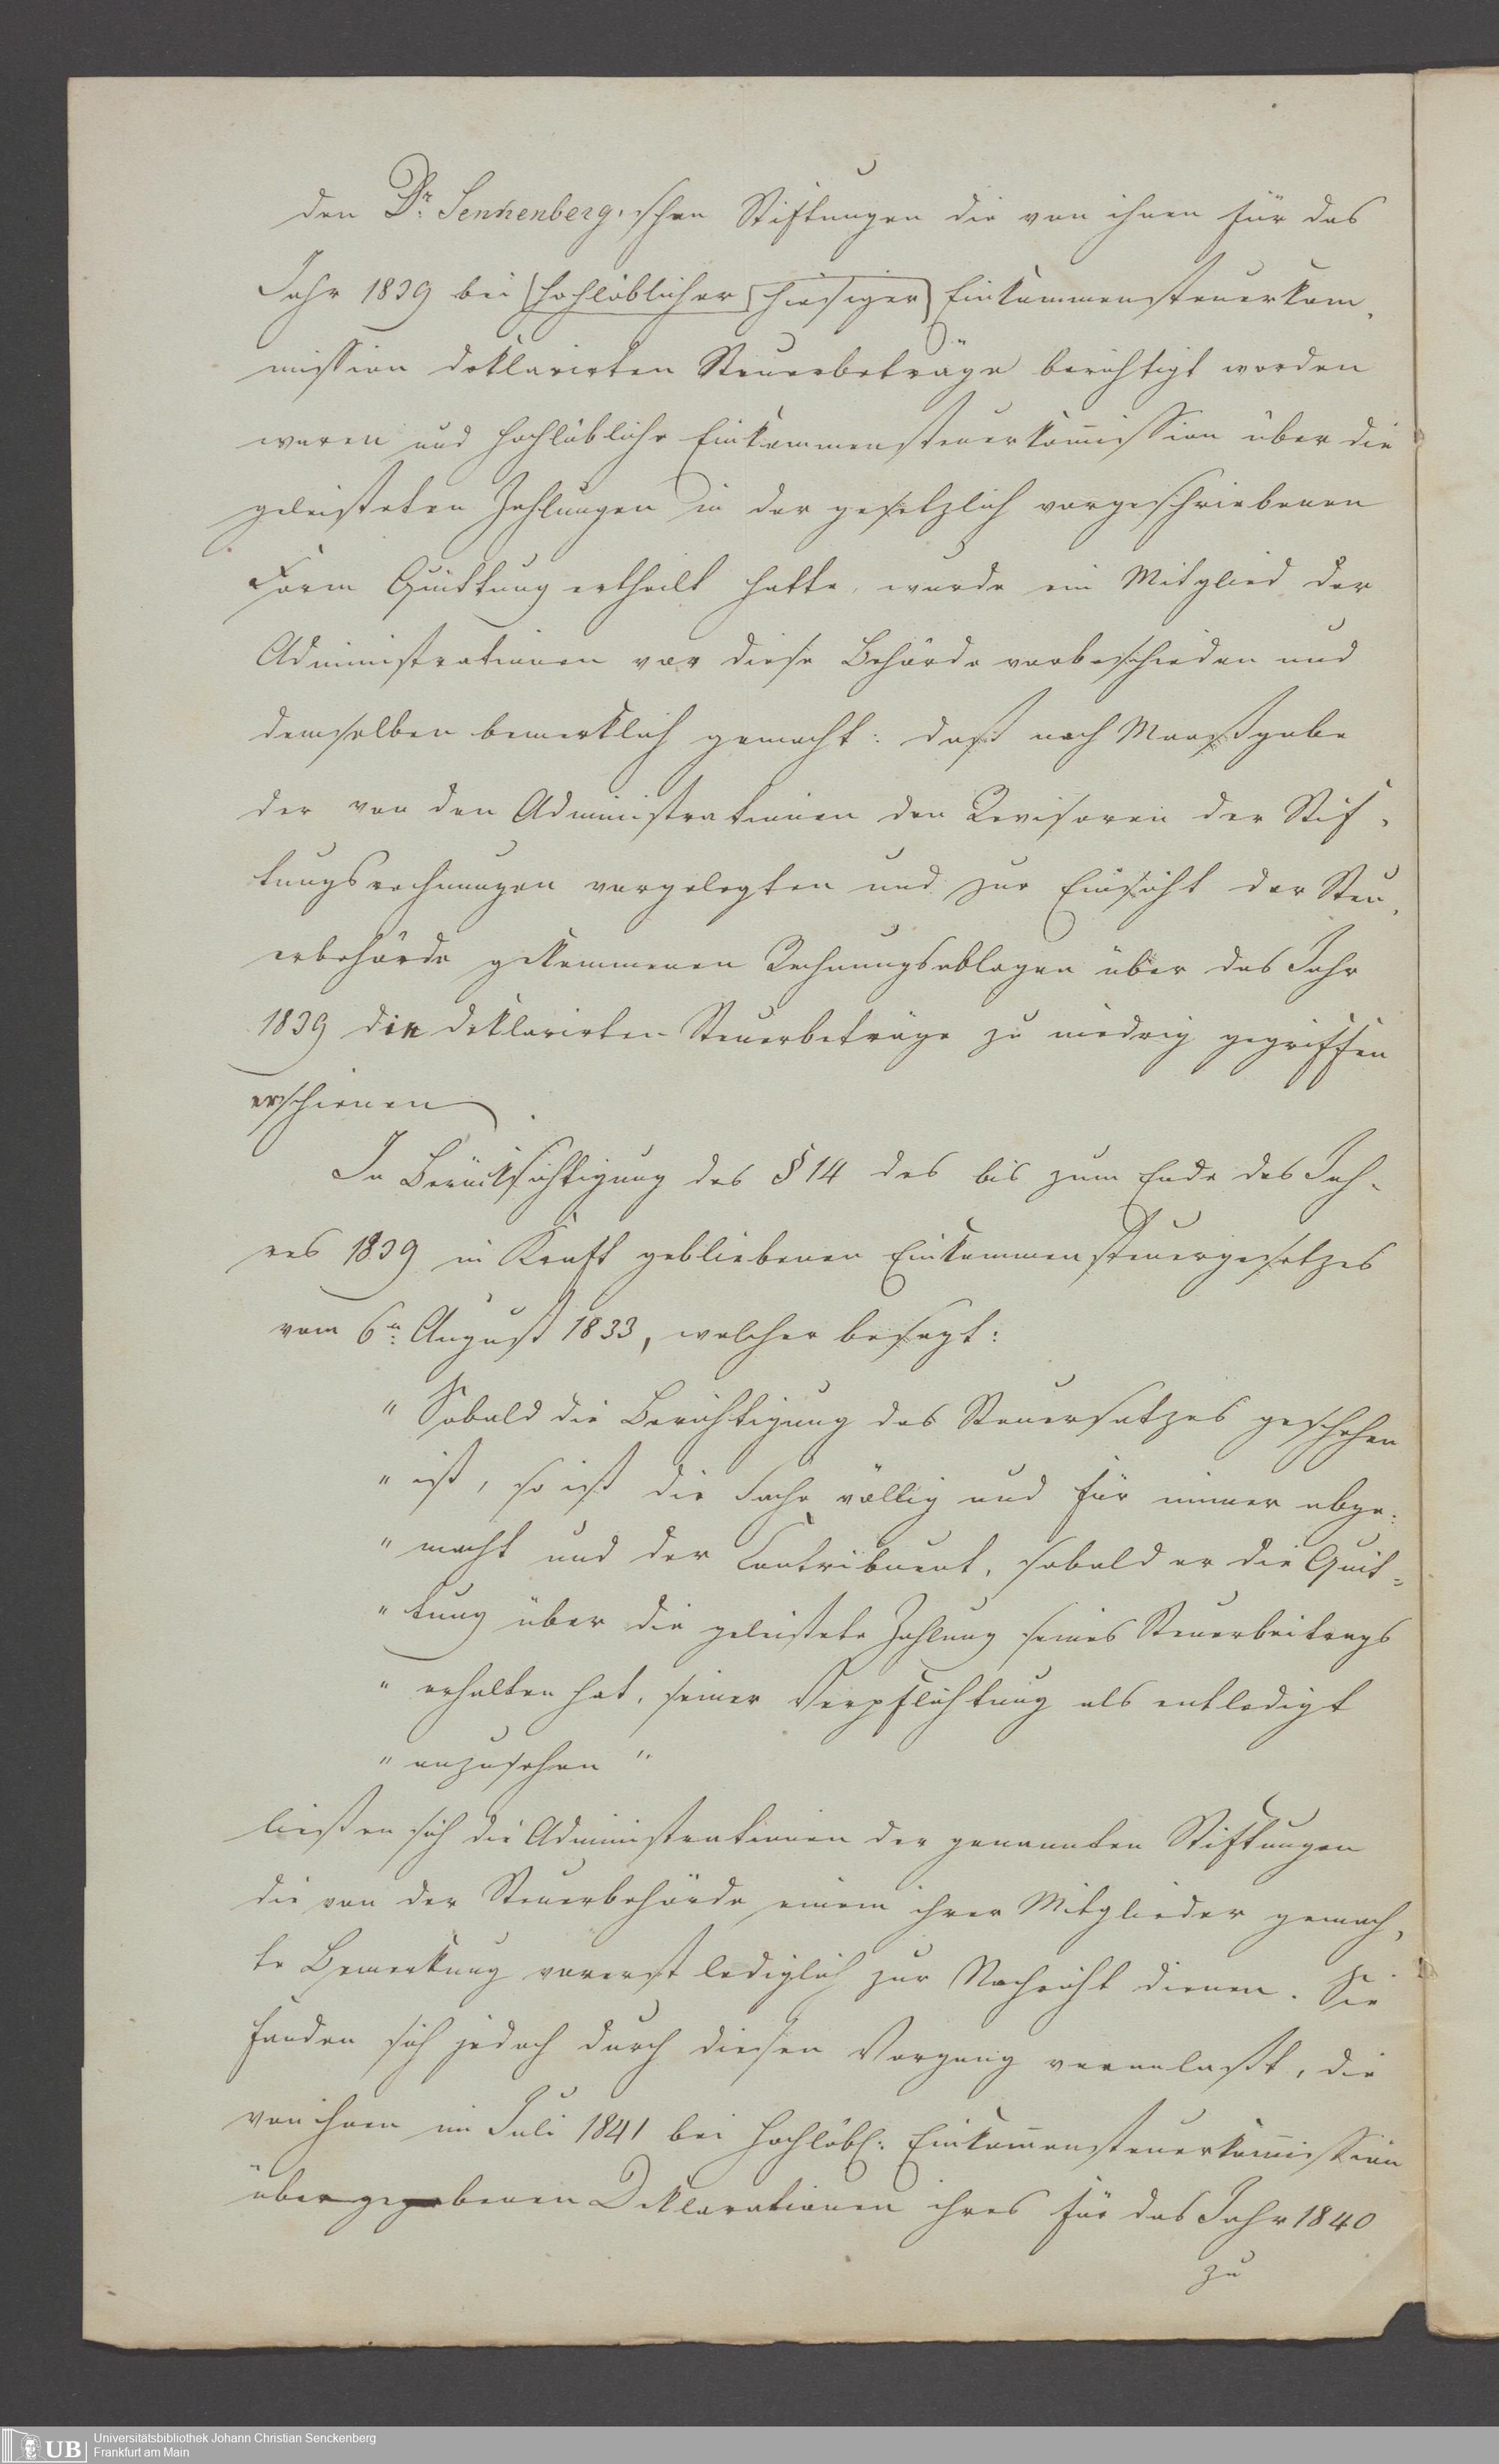 den Dr. Senkenberg,schen Stiftungen die von ihnen für das
Jahr 1839 bei hochlöblicher hiesiger Einkommensteuerkom,
mission deklarirten Steuerbeträge berichtigt worden
waren und hochlöbliche Einkommensteuerkom̄ission über die
geleisteten Zahlungen in der gesetzlich vorgeschriebenen
Form Quittung ertheilt hatte, wurde ein Mitglied der
Administrationen vor diese Behörde vorbeschieden und
demselben bemerklich gemacht: daß nach Maaßgabe
der von den Administrationen den Revisoren der Stif,
tungsrechnungen vorgelegten und zur Einsicht der Steu,
erbehörde gekommenen Rechnungsablagen über das Jahr
1839 die deklarirten Steuerbeträge zu niedrig gegriffen
erschienen.
In Berücksichtigung des § 14 des bis zum Ende des Jah-
res 1839 in Kraft gebliebenen Einkommensteuergesetzes
vom 6n. August 1833, welcher besagt:
" Sobald die Berichtigung des Steuersatzes geschehen
" ist, so ist die Sache völlig und für immer abge-
" macht und der Contribuent, sobald er die Quit=
" tung über die geleistete Zahlung seines Steuerbeitrags
" erhalten hat, seiner Verpflichtung als entledigt
" anzusehen "
ließen sich die Administrationen der genannten Stiftungen
die von der Steuerbehörde einem ihrer Mitglieder gemach,
te Bemerkung vorerst lediglich zur Nachricht dienen. Sie
fanden sich jedoch durch diesen Vorgang veranlaßt, die
von ihnen im Juli 1841 bei hochlöbl: Einkom̄ensteuerkom̄ission
übergegebenen Deklarationen ihres für das Jahr 1840
zu
UB
Universitätsbibliothek Johann Christian Senckenberg
Frankfurt am Main